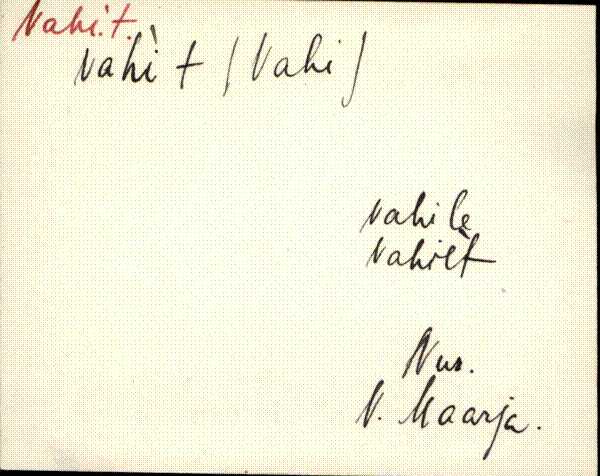 Vahi. t.
vahì t (Vahi)
vahile
vahilt
Nur.
V. Maarja.